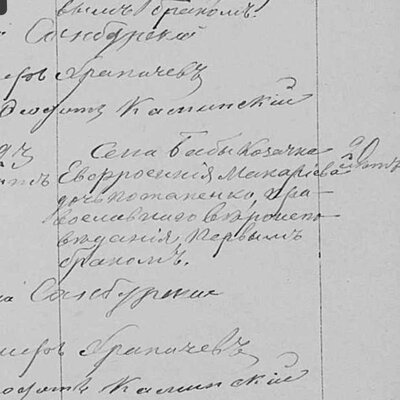 вымъ бракомъ.
Санбурскій
Храпачевъ
Ѳеодотъ Каминскій
Села Бабы Козачка
Евфросинія Макаріева
дочь Потапенко, пра-
вославнаго вѣроиспо-
вѣданія, первымъ
бракомъ.
Санбурскій
Храпачевъ
Каминскій